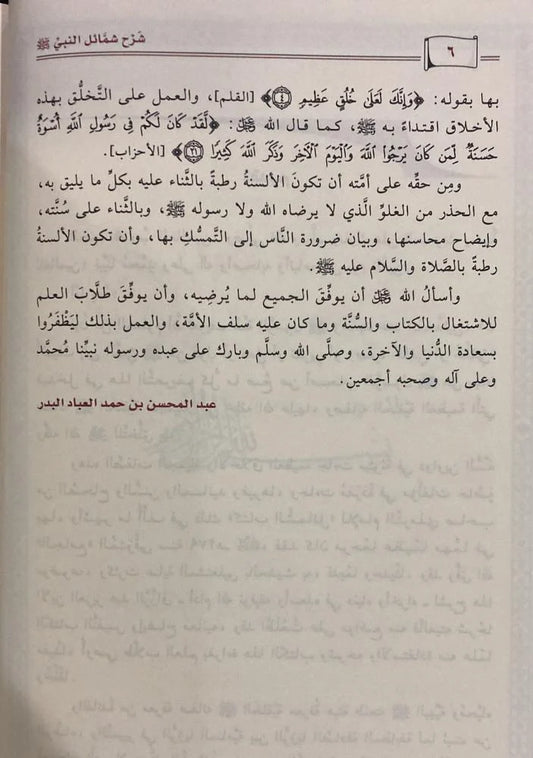 شرح شمائل النبي ﷺ
٦
بها بقوله: ﴿وَإِنَّكَ لَعَلَىٰ خُلُقٍ عَظِيمٍ ﴿٤﴾﴾ [القلم]، والعمل على التَّخلُّق بهذه
الأخلاق اقتداءً به ﷺ، كما قال الله ﷻ: ﴿لَّقَدْ كَانَ لَكُمْ فِي رَسُولِ ٱللَّهِ أُسْوَةٌ
حَسَنَةٌ لِّمَن كَانَ يَرْجُوا۟ ٱللَّهَ وَٱلْيَوْمَ ٱلْآخِرَ وَذَكَرَ ٱللَّهَ كَثِيرًا ﴿٢١﴾﴾ [الأحزاب].
ومِن حقِّه على أمَّته أن تكونَ الألسنةُ رطبةً بالثَّناء عليه بكلِّ ما يليق به،
مع الحذر من الغلوِّ الَّذي لا يرضاه الله ولا رسوله ﷺ، وبالثَّناء على سُنَّته،
وإيضاح محاسنها، وبيان ضرورة النَّاس إلى التَّمسُّك بها، وأن تكون الألسنةُ
رطبةً بالصَّلاة والسَّلام عليه ﷺ.
وأسألُ الله ﷻ أن يوفِّقَ الجميع لما يُرضِيه، وأن يوفِّقَ طلَّابَ العلم
للاشتغال بالكتاب والسُّنَّة وما كان عليه سلف الأمَّة، والعمل بذلك ليَظْفَرُوا
بسعادة الدُّنيا والآخرة، وصلَّى الله وسلَّم وبارك على عبده ورسوله نبيِّنا مُحمَّد
وعلى آله وصحبه أجمعين.
عبد المحسن بن حمد العباد البدر